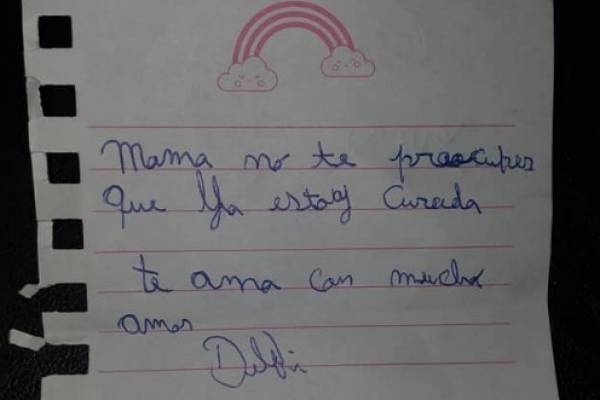 Mama no te preocupes
que Ya estoy Curada
te ama con mucho
amor
Delfi